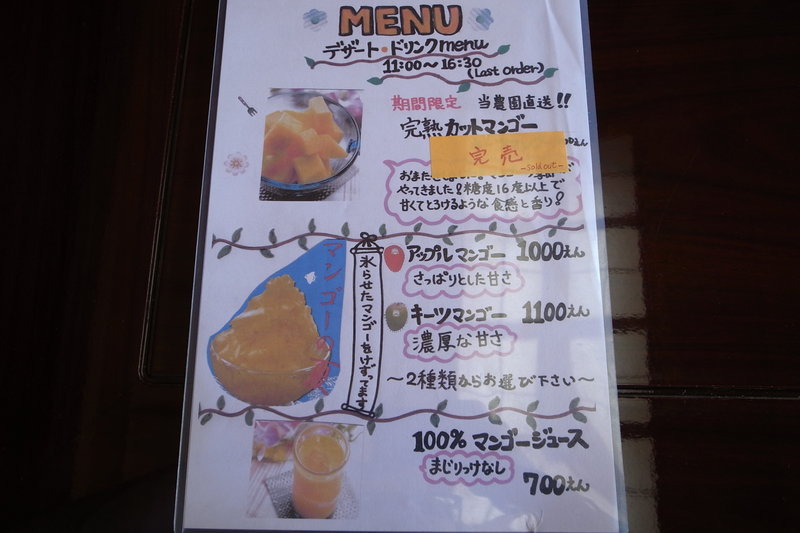 MENU
デザート・ドリンクmenu
11:00～16:30
(Last order)
期間限定 当農園直送!!
完熟カットマンゴー
えん
完売
-Sold out-
やってきました!糖度16度以上で
甘くてとろけるような食感と香り!
マンゴーの
氷らせたマンゴーをけずってます
アップルマンゴー 1000えん
さっぱりとした甘さ
キーツマンゴー 1100えん
濃厚な甘さ
～2種類からお選び下さい～
100% マンゴージュース
まじりっけなし
700えん